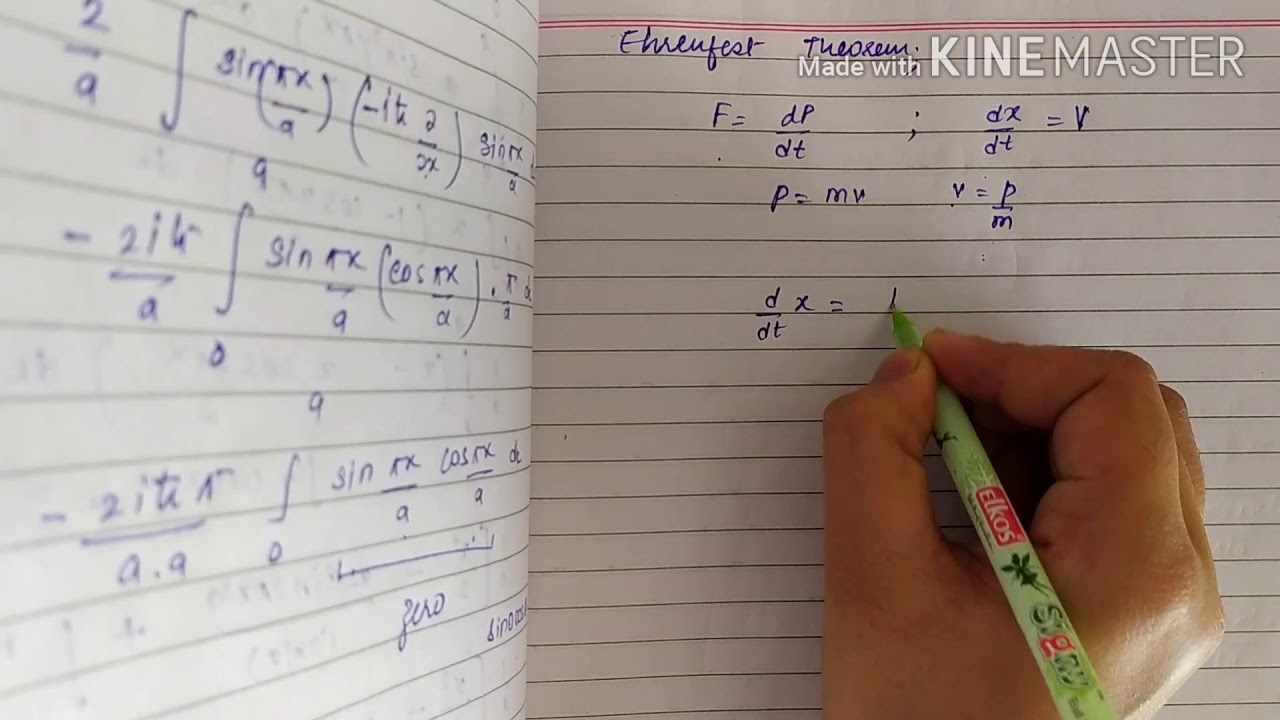 2/a ∫ sin(πx/a) (-iħ ∂/∂x) sin πx/a
a
- 2iħ/a ∫ sin πx/a (cos πx/a) . π/a dx
0
a
- 2iħπ/a.a ∫ sin πx/a cos πx/a dx
0
zero
sinθcos
Ehrenfest Theorem;
Made with KINEMASTER
F = dP/dt ; dx/dt = V
P = mv v = p/m
d/dt x =
Elkos